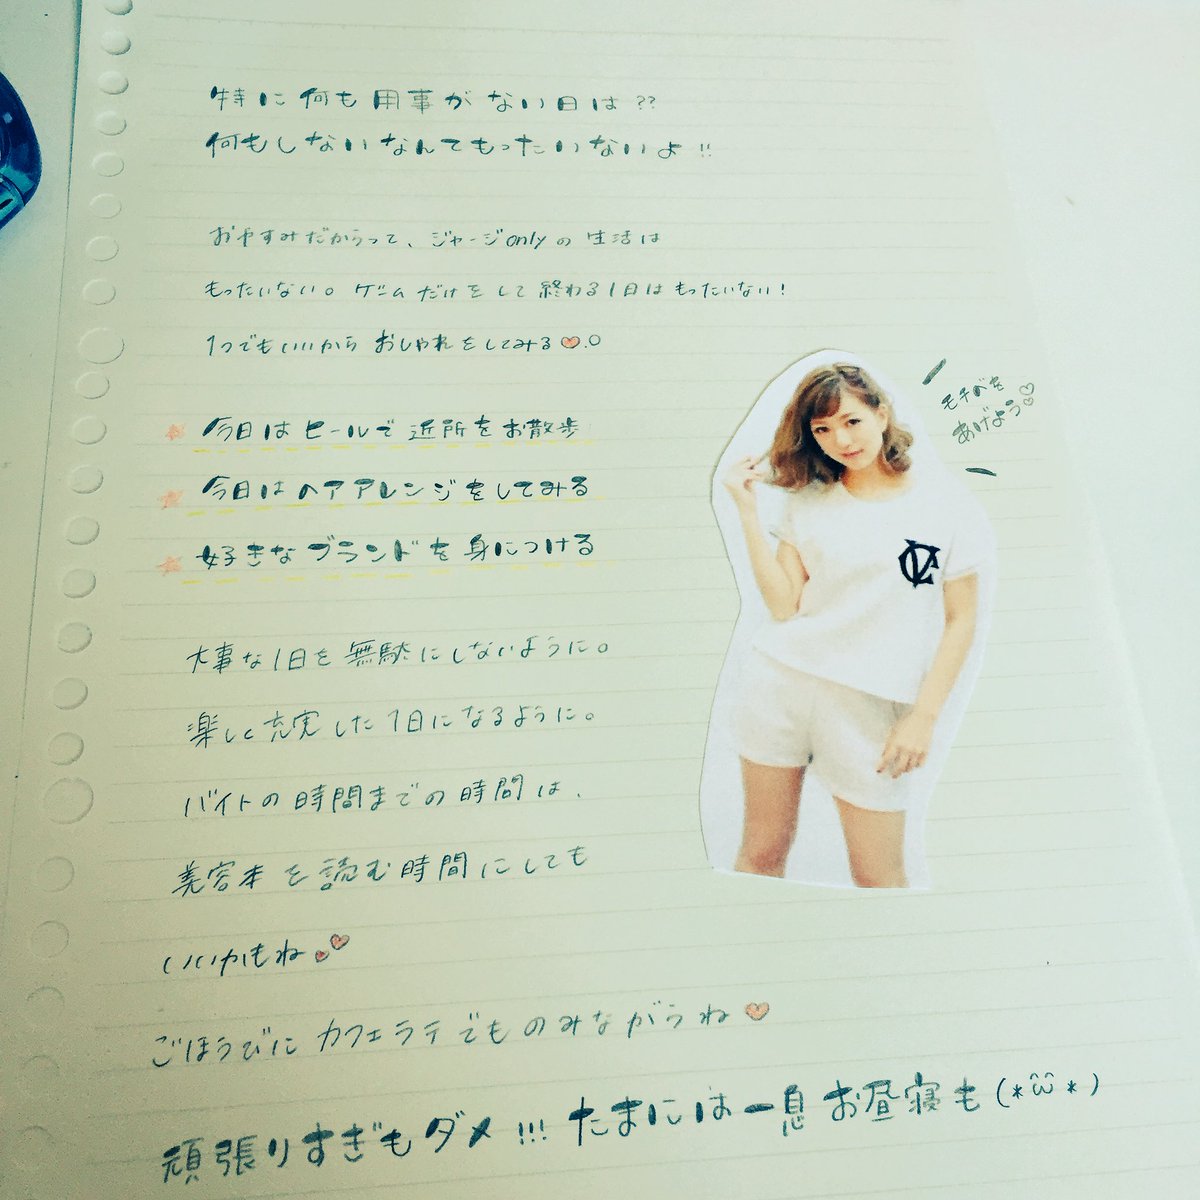 特に何も用事がない日は??
何もしないなんてもったいないよ!!
おやすみだからって、ジャージonlyの生活は
もったいない。ゲームだけをして終わる1日はもったいない!
1つでもいいからおしゃれをしてみる♡.○
モチベを
あげよう♡
今日はヒールで近所をお散歩
今日はヘアアレンジをしてみる
好きなブランドを身につける
大事な1日を無駄にしないように。
楽しく充実した1日になるように。
バイトの時間までの時間は、
美容本を読む時間にしても
いいかもね
ごほうびにカフェラテでものみながらね♡
頑張りすぎもダメ!!!たまには一息お昼寝も(*^ω^*)